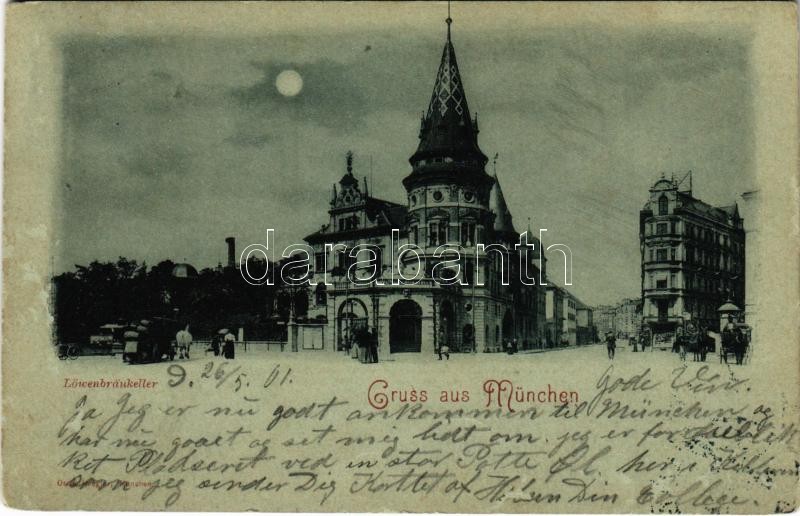 darabanth
Löwenbräukeller
D. 26/5. 01.
Gruss aus München
Gode Ven.
Ja Jeg er nu godt ankommen til München og
har nu gaaet og set mig lidt om. jeg er
ket Pladseret ved en stor Potte Øl. her i
jeg sender Dig Kortet af Hilsen Din College.